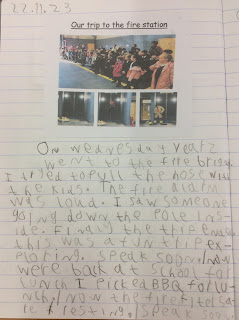 22.11.23
Our trip to the fire station
On wednesday year2
went to the fire brige
I tryed to pull the hose with
the kids. The fire alarm
was loud. I saw someone
going down the pole ins-
ide. Finaly the trip ends
this was a fun trip ex-
ploring. speak soon. now
were back at school for
lunch I picked BBQ for lu-
nch. now the
resting. speak soon.